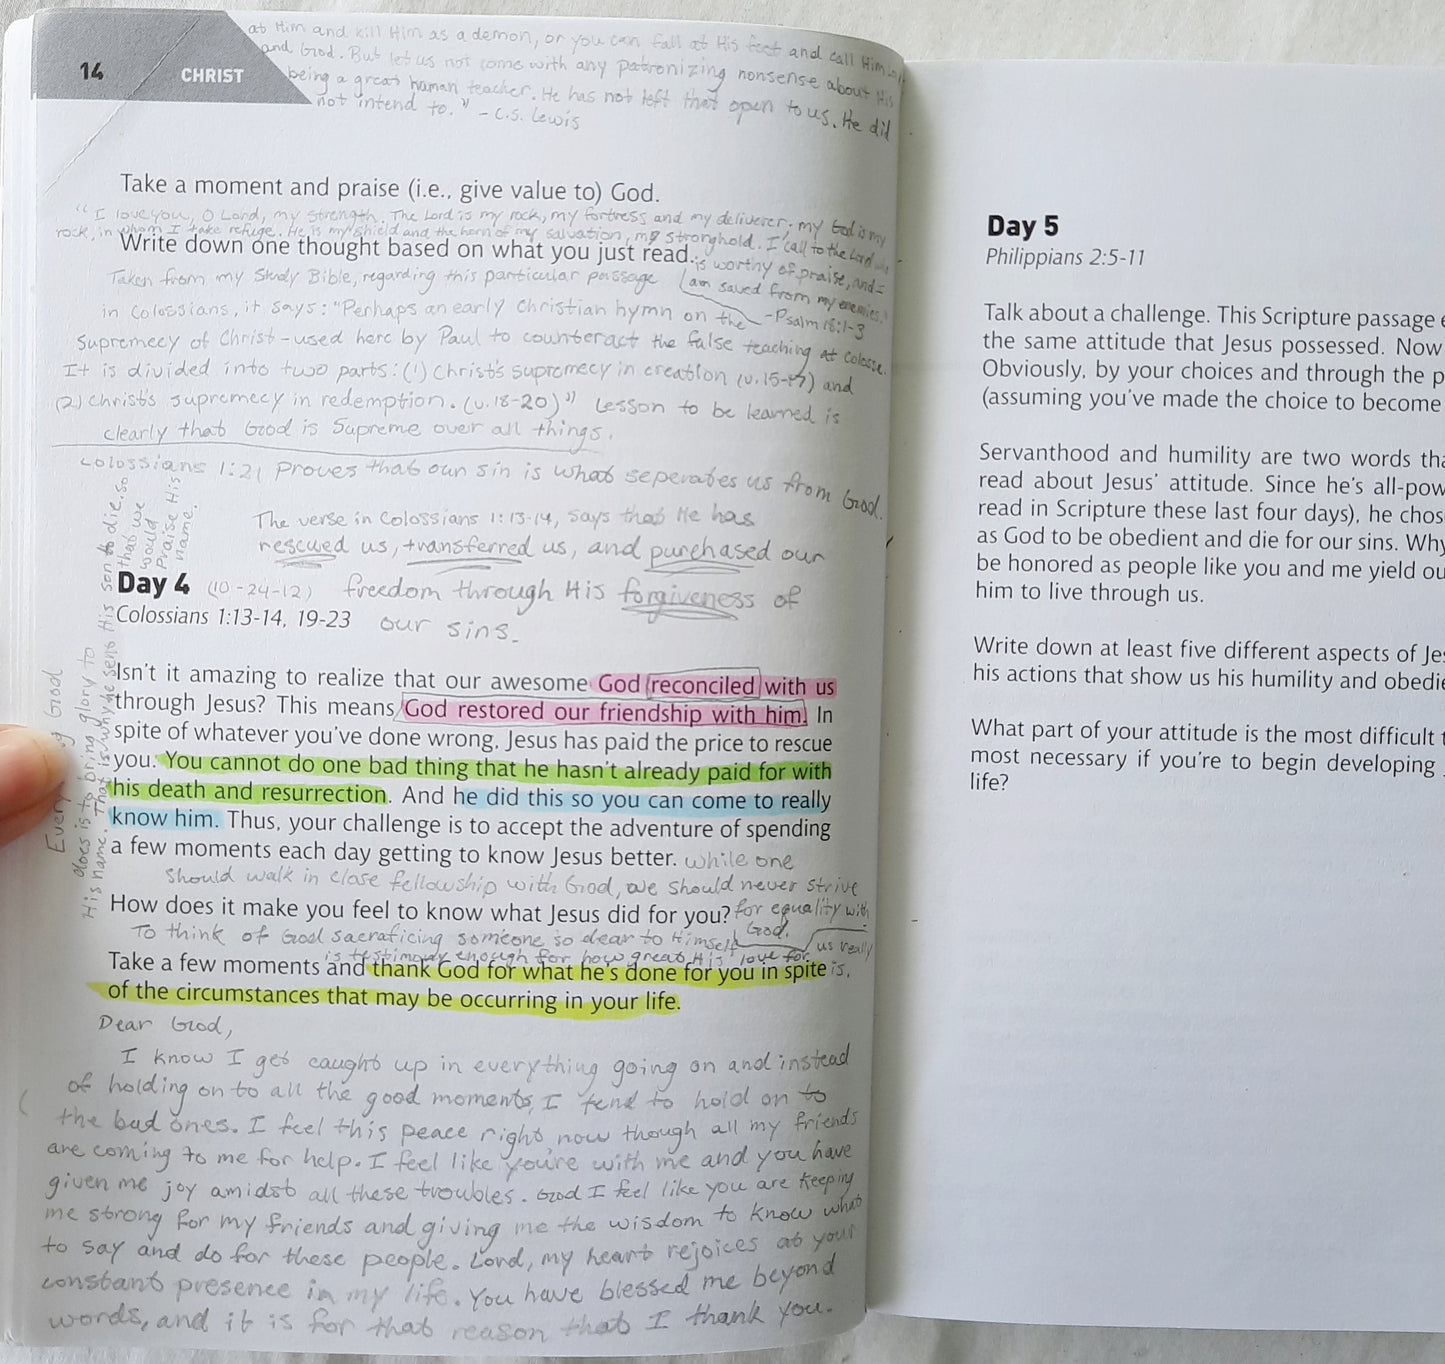 at Him and kill Him as a demon, or you can fall at His feet and call Him
14 CHRIST
and God. But let us not come with any patronizing nonsense about His
being a great human teacher. He has not left that open to us. He did
not intend to." - C.S. Lewis
Take a moment and praise (i.e., give value to) God.
"I love you, O Lord, my strength. The Lord is my rock, my fortress and my deliverer. my God is my
rock, in whom I take refuge. He is my shield and the horn of my salvation, my stronghold. I call to the Lord who
is worthy of praise, and
I am saved from my enemies."
-Psalm 18:1-3
Write down one thought based on what you just read.
Taken from my Study Bible, regarding this particular passage
in Colossians, it says: "Perhaps an early Christian hymn on the
Supremecy of Christ - used here by Paul to counteract the false teaching at Colosse.
It is divided into two parts: (1) Christ's supremecy in creation (v. 15-17) and
(2) Christ's supremecy in redemption. (v. 18-20)" Lesson to be learned is
clearly that God is Supreme over all things.
Colossians 1:21 proves that our sin is what seperates us from God.
The verse in Colossians 1:13-14, says that He has
rescued us, transferred us, and purchased our
freedom through His forgiveness of
our sins.
Day 4 (10-24-12)
Colossians 1:13-14, 19-23
Everything God
does is to bring glory to
His name. That is why he sent His son to die. so
that we
would
Praise His
name.
Isn't it amazing to realize that our awesome God reconciled with us
through Jesus? This means God restored our friendship with him. In
spite of whatever you've done wrong, Jesus has paid the price to rescue
you. You cannot do one bad thing that he hasn't already paid for with
his death and resurrection. And he did this so you can come to really
know him. Thus, your challenge is to accept the adventure of spending
a few moments each day getting to know Jesus better.
while one
should walk in close fellowship with God, we should never strive
for equality with
God.
How does it make you feel to know what Jesus did for you?
To think of God sacraficing someone so dear to Himself
is testimony enough for how great His love for
us really
is.
Take a few moments and thank God for what he's done for you in spite
of the circumstances that may be occurring in your life.
Dear God,
I know I get caught up in everything going on and instead
of holding on to all the good moments, I tend to hold on to
the bad ones. I feel this peace right now though all my friends
are coming to me for help. I feel like you're with me and you have
given me joy amidst all these troubles. God I feel like you are keeping
me strong for my friends and giving me the wisdom to know what
to say and do for these people. Lord, my heart rejoices at your
constant presence in my life. You have blessed me beyond
words, and it is for that reason that I thank you.
Day 5
Philippians 2:5-11
Talk about a challenge. This Scripture passage
the same attitude that Jesus possessed. Now
Obviously, by your choices and through the p
(assuming you've made the choice to become
Servanthood and humility are two words tha
read about Jesus' attitude. Since he's all-pow
read in Scripture these last four days), he chos
as God to be obedient and die for our sins. Why
be honored as people like you and me yield ou
him to live through us.
Write down at least five different aspects of Je
his actions that show us his humility and obedie
What part of your attitude is the most difficult t
most necessary if you're to begin developing
life?